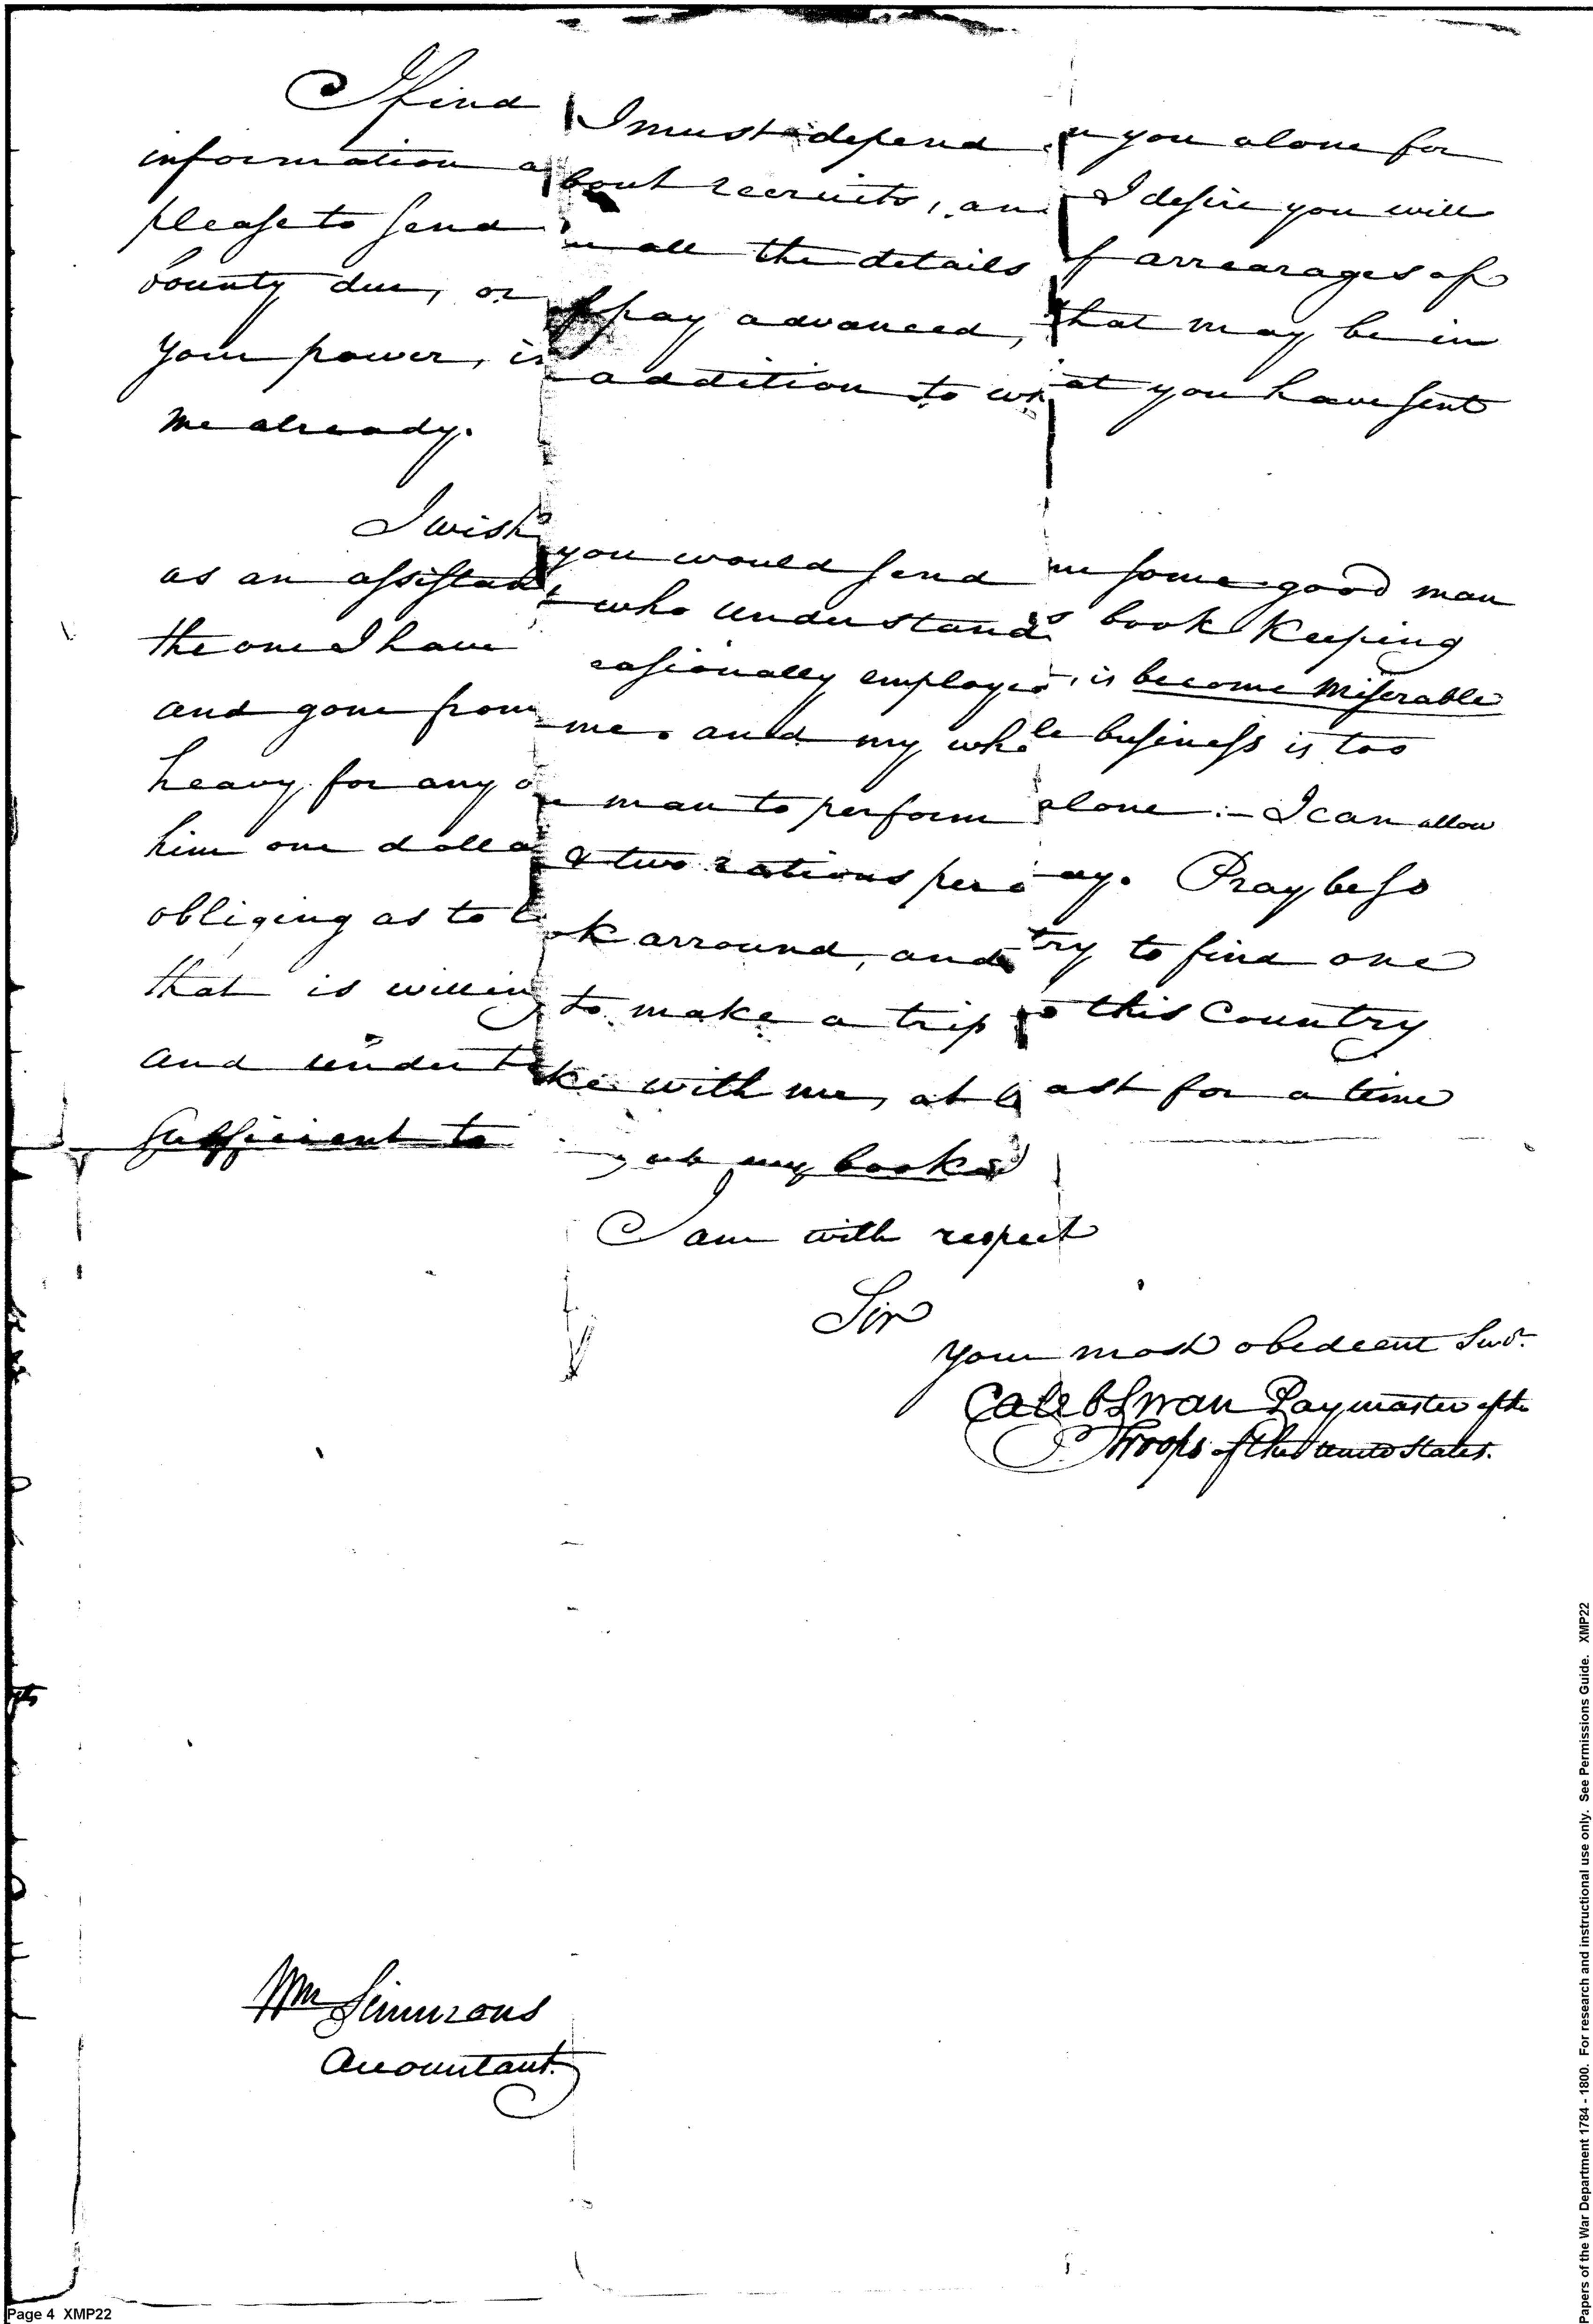 I find I must depend on you alone for
information about recruits, and I desire you will
please to send me all the details of arrearages of
bounty due, or of pay advanced, that may be in
your power, in addition to what you have sent
me already.
I wish you would send me some good man
as an assistant who understands book Keeping
the one I have occasionally employed, is become Miserable
and gone from me. and my whole business is too
heavy for any one man to perform alone :- I can allow
him one dollar & two rations per day. Pray be so
obliging as to look arround, and try to find one
that is willing to make a trip to this Country
and undertake with me, at least for a time
sufficient to my books
I am with respect
Sir
your most obedeent Servt.
Caleb Swan Paymaster of the
Troops of the United States.
Wm Simmons
Accountant.
Page 4 XMP22
Papers of the War Department 1784 - 1800. For research and instructional use only. See Permissions Guide. XMP22